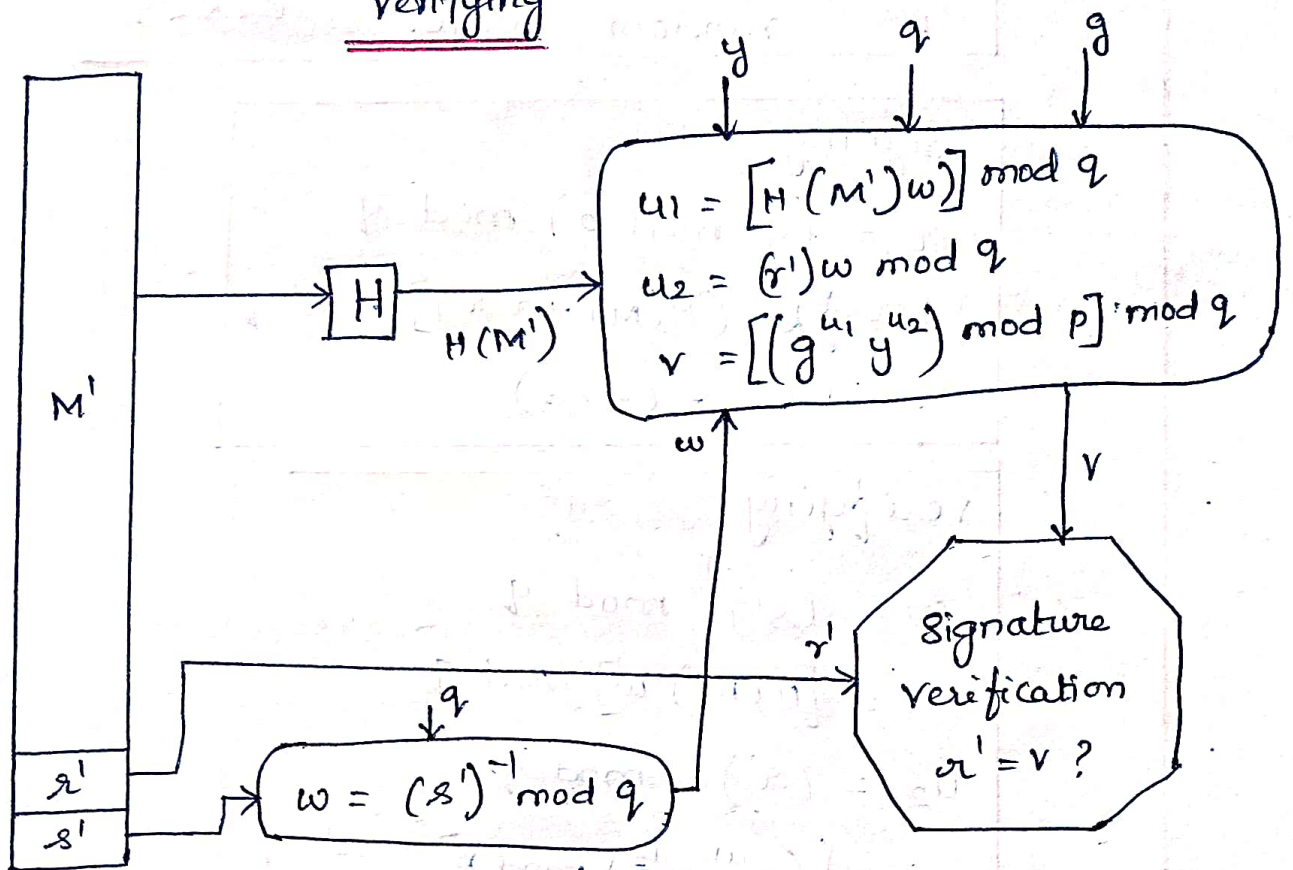 verifying
y q g
u1 = [H (M')w)] mod q
u2 = (r')w mod q
v = [(g^u1 y^u2) mod p] mod q
H
H (M')
M'
w
v
r'
signature
verification
r' = v ?
q
w = (s')^-1 mod q
r'
s'